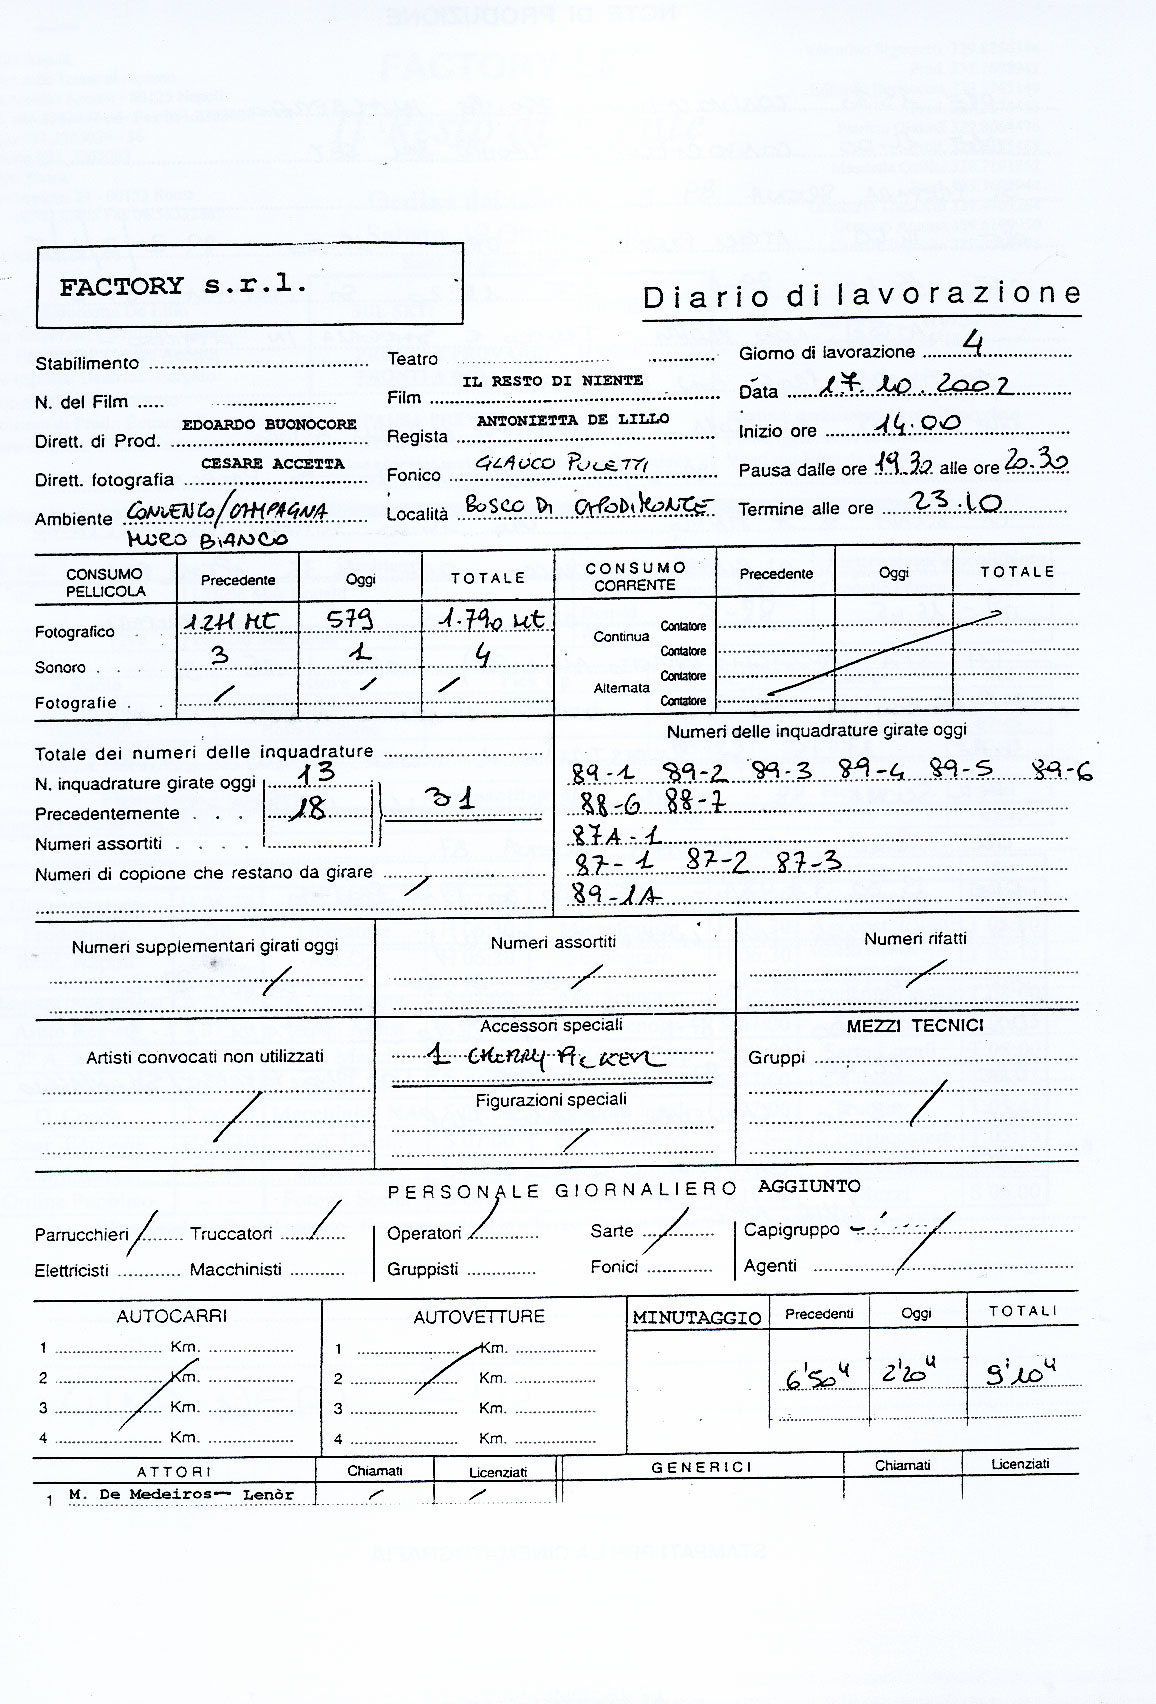 FACTORY s.r.l.
Diario di lavorazione
Stabilimento
Teatro
Giorno di lavorazione 4
N. del Film
Film IL RESTO DI NIENTE
Data 17.10.2002
Dirett. di Prod. EDOARDO BUONOCORE
Regista ANTONIETTA DE LILLO
Inizio ore 14.00
Dirett. fotografia CESARE ACCETTA
Fonico GLAUCO PULETTI
Pausa dalle ore 19.30 alle ore 20.30
Ambiente CONVENTO/CAMPAGNA
MURO BIANCO
Località BOSCO DI CAPODIMONTE
Termine alle ore 23.10
CONSUMO PELLICOLA Precedente Oggi TOTALE
CONSUMO CORRENTE Precedente Oggi TOTALE
Fotografico 1211 MT 579 1.790 MT
Sonoro 3 1 4
Fotografie / / /
Continua Contatore
Contatore
Alternata Contatore
Contatore
Totale dei numeri delle inquadrature
N. inquadrature girate oggi 13
Precedentemente 18 31
Numeri assortiti
Numeri di copione che restano da girare /
Numeri delle inquadrature girate oggi
89-1 89-2 89-3 89-4 89-5 89-6
88-6 88-7
87A-1
87-1 87-2 87-3
89-1A
Numeri supplementari girati oggi /
Numeri assortiti /
Numeri rifatti /
Artisti convocati non utilizzati /
Accessori speciali
1 CHERRY PICKER
Figurazioni speciali /
MEZZI TECNICI
Gruppi /
PERSONALE GIORNALIERO AGGIUNTO
Parrucchieri / Truccatori / Operatori / Sarte / Capigruppo /
Elettricisti Macchinisti Gruppisti Fonici Agenti
AUTOCARRI
1 Km.
2 Km.
3 Km.
4 Km.
AUTOVETTURE
1 Km.
2 Km.
3 Km.
4 Km.
MINUTAGGIO Precedenti Oggi TOTALI
6'50" 2'20" 9'10"
ATTORI Chiamati Licenziati GENERICI Chiamati Licenziati
1 M. De Medeiros— Lenòr / /